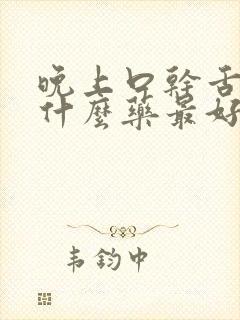 晚上口干舌
什麼藥最好
韦钧中